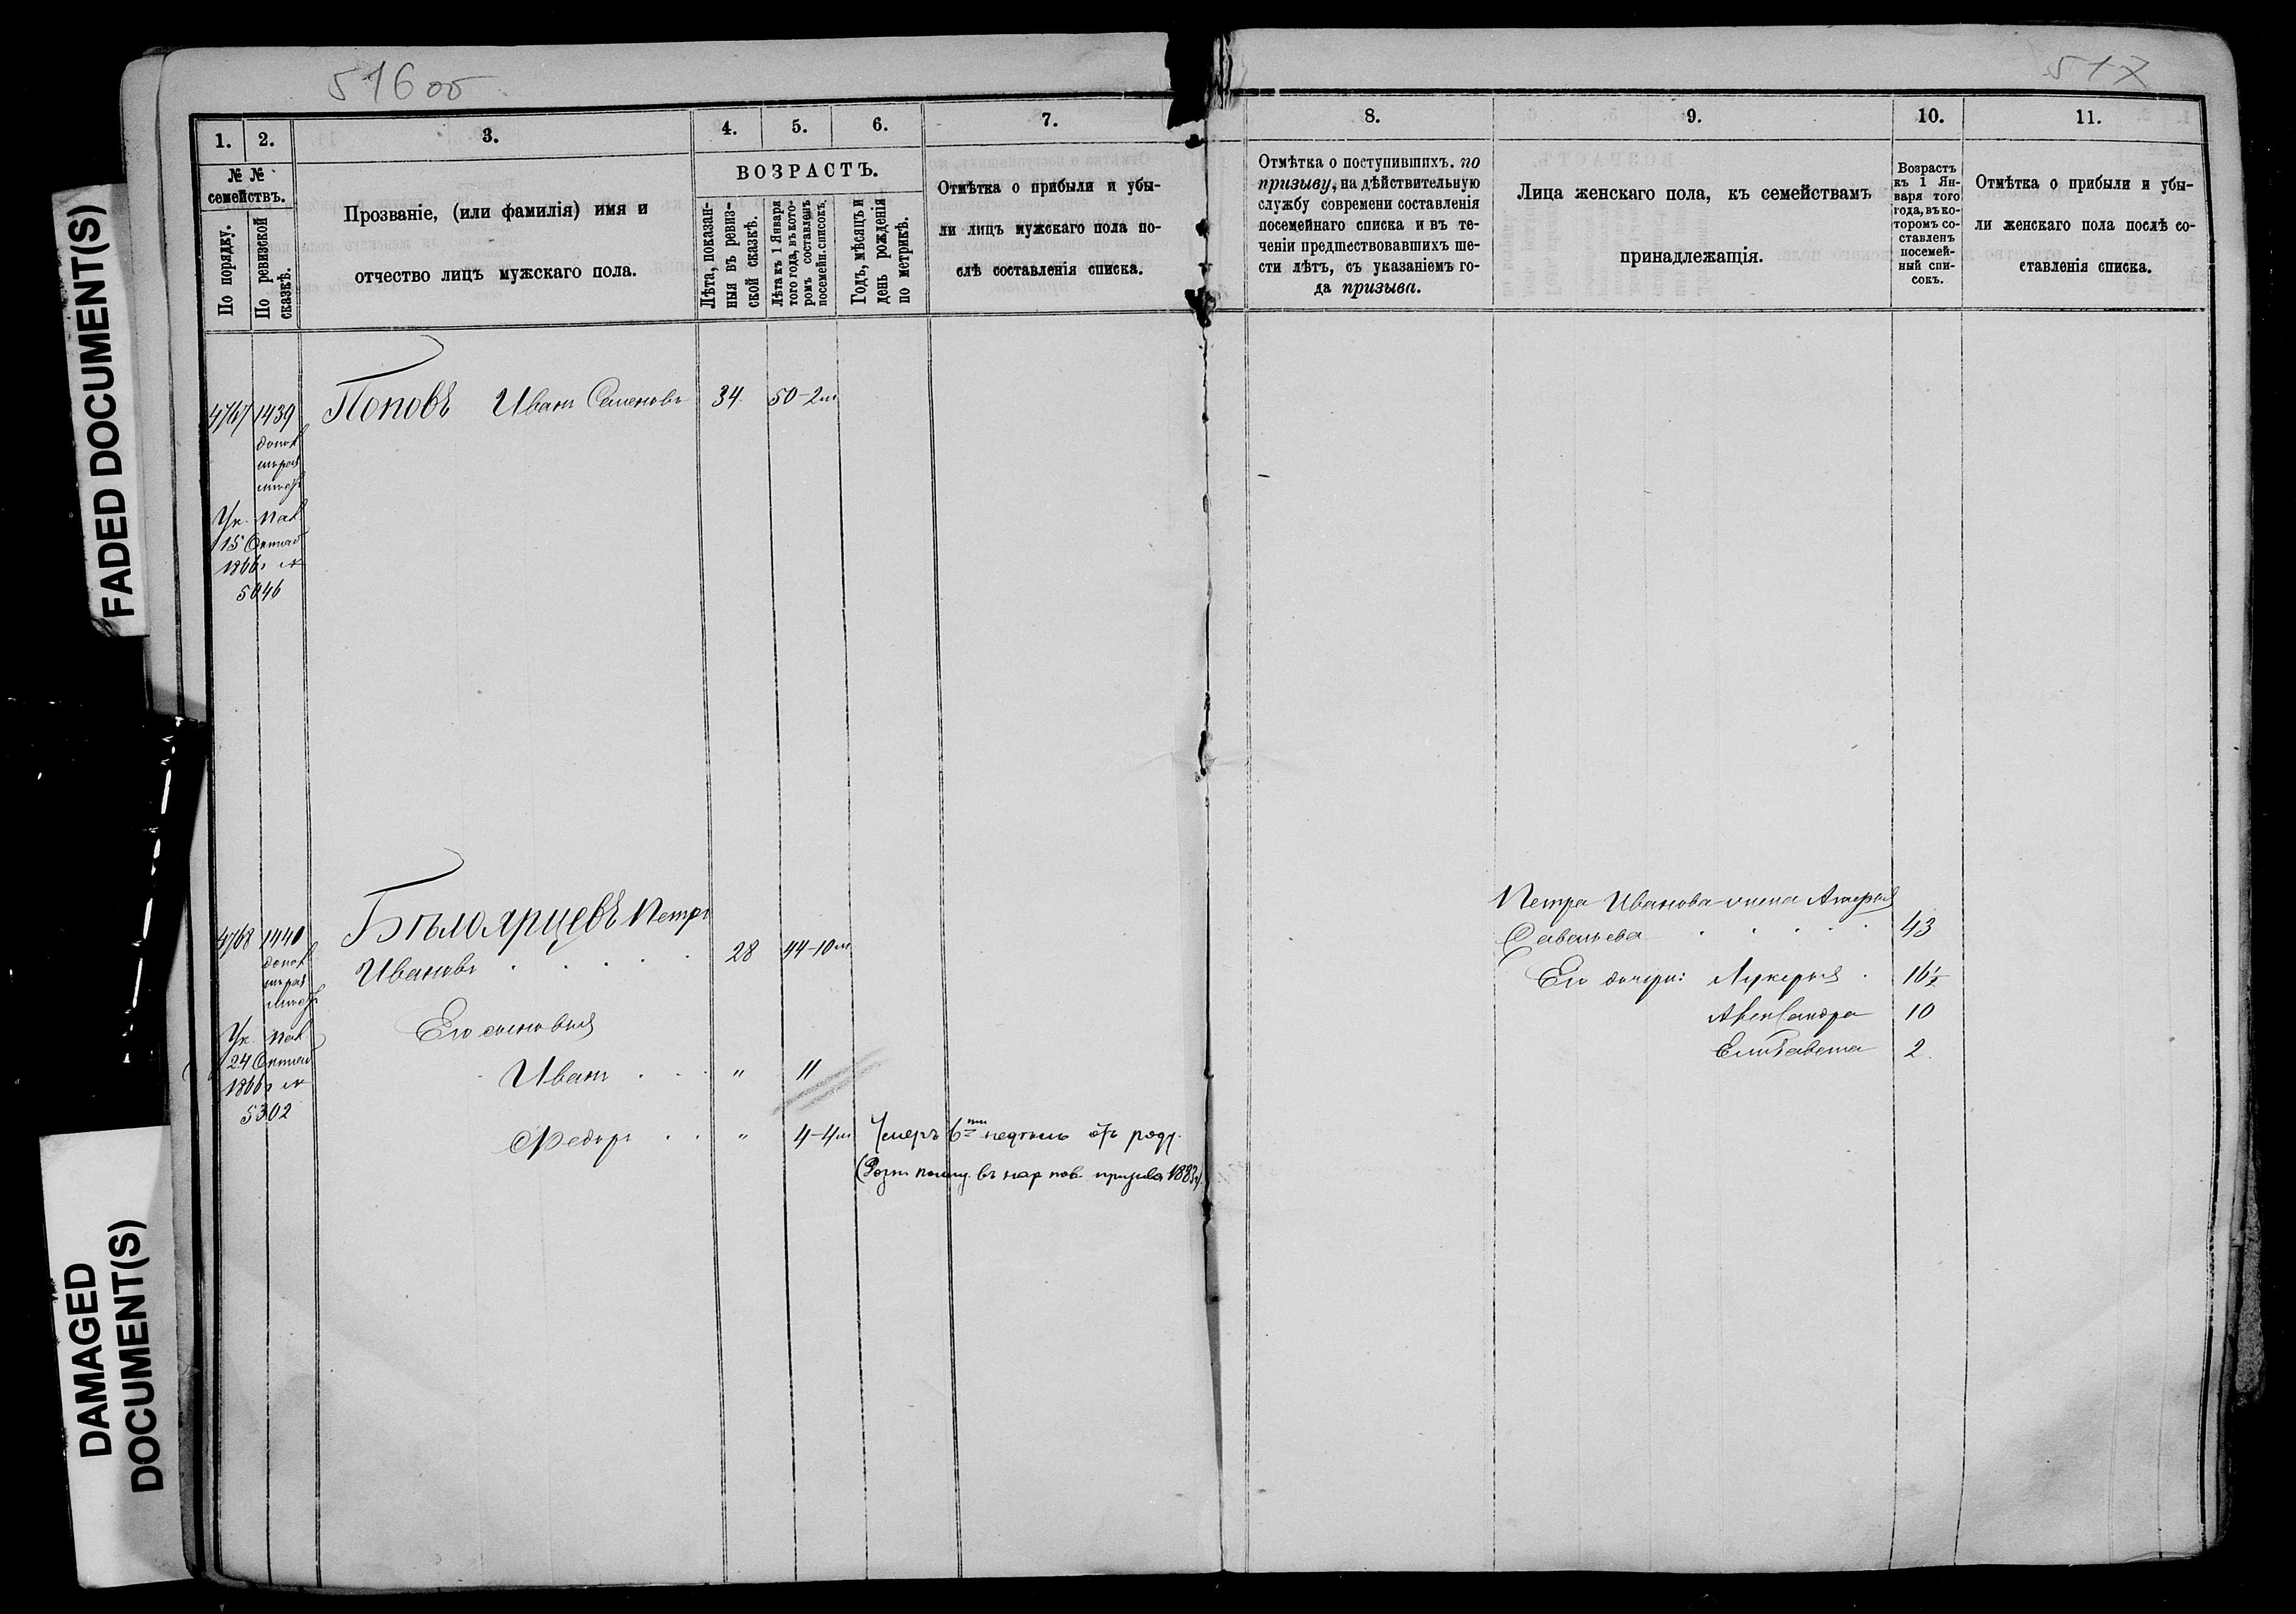 516 об
517
FADED DOCUMENT(S)
DAMAGED
DOCUMENT(S)
1. 2. 3. 4. 5. 6. 7.
№ №
семействъ.
По порядку.
По ревизской
сказкѣ.
Прозваніе, (или фамилія) имя и
отчество лицъ мужскаго пола.
ВОЗРАСТЪ.
Лѣта, показан-
ныя въ ревиз-
ской сказкѣ.
Лѣта къ 1 Января
того года, въ кото-
ромъ составленъ
посемейн. списокъ.
Годъ, мѣсяцъ и
день рожденія
по метрикѣ.
Отмѣтка о прибыли и убы-
ли лицъ мужскаго пола по-
слѣ составленія списка.
4767 1439 Поповъ Иванъ Семеновъ 34. 50-2м
Ук. Пал
15
1866г №
5046
4768 1440 Бѣлоярцевъ Петръ
Ивановъ 28 44-10м
Ук. Пал
24
1866г №
5302
Его сыновья
Иванъ " 11
Федоръ " 4-4м Умеръ 6ти недѣль отъ роду.
призыва 1883г.)
8. 9. 10. 11.
Отмѣтка о поступившихъ. по
призыву, на дѣйствительную
службу современи составленія
посемейнаго списка и въ те-
ченіи предшествовавшихъ ше-
сти лѣтъ, съ указаніемъ го-
да призыва.
Лица женскаго пола, къ семействамъ
принадлежащія.
Возрастъ
къ 1 Ян-
варя того
года, въ ко-
торомъ со-
ставленъ
посемей-
ный спи-
сокъ.
Отмѣтка о прибыли и убы-
ли женскаго пола послѣ со-
ставленія списка.
Петра Иванова жена
Савельева 43
Его дочери: Лукерья 16½
Александра 10
Елизавета 2.